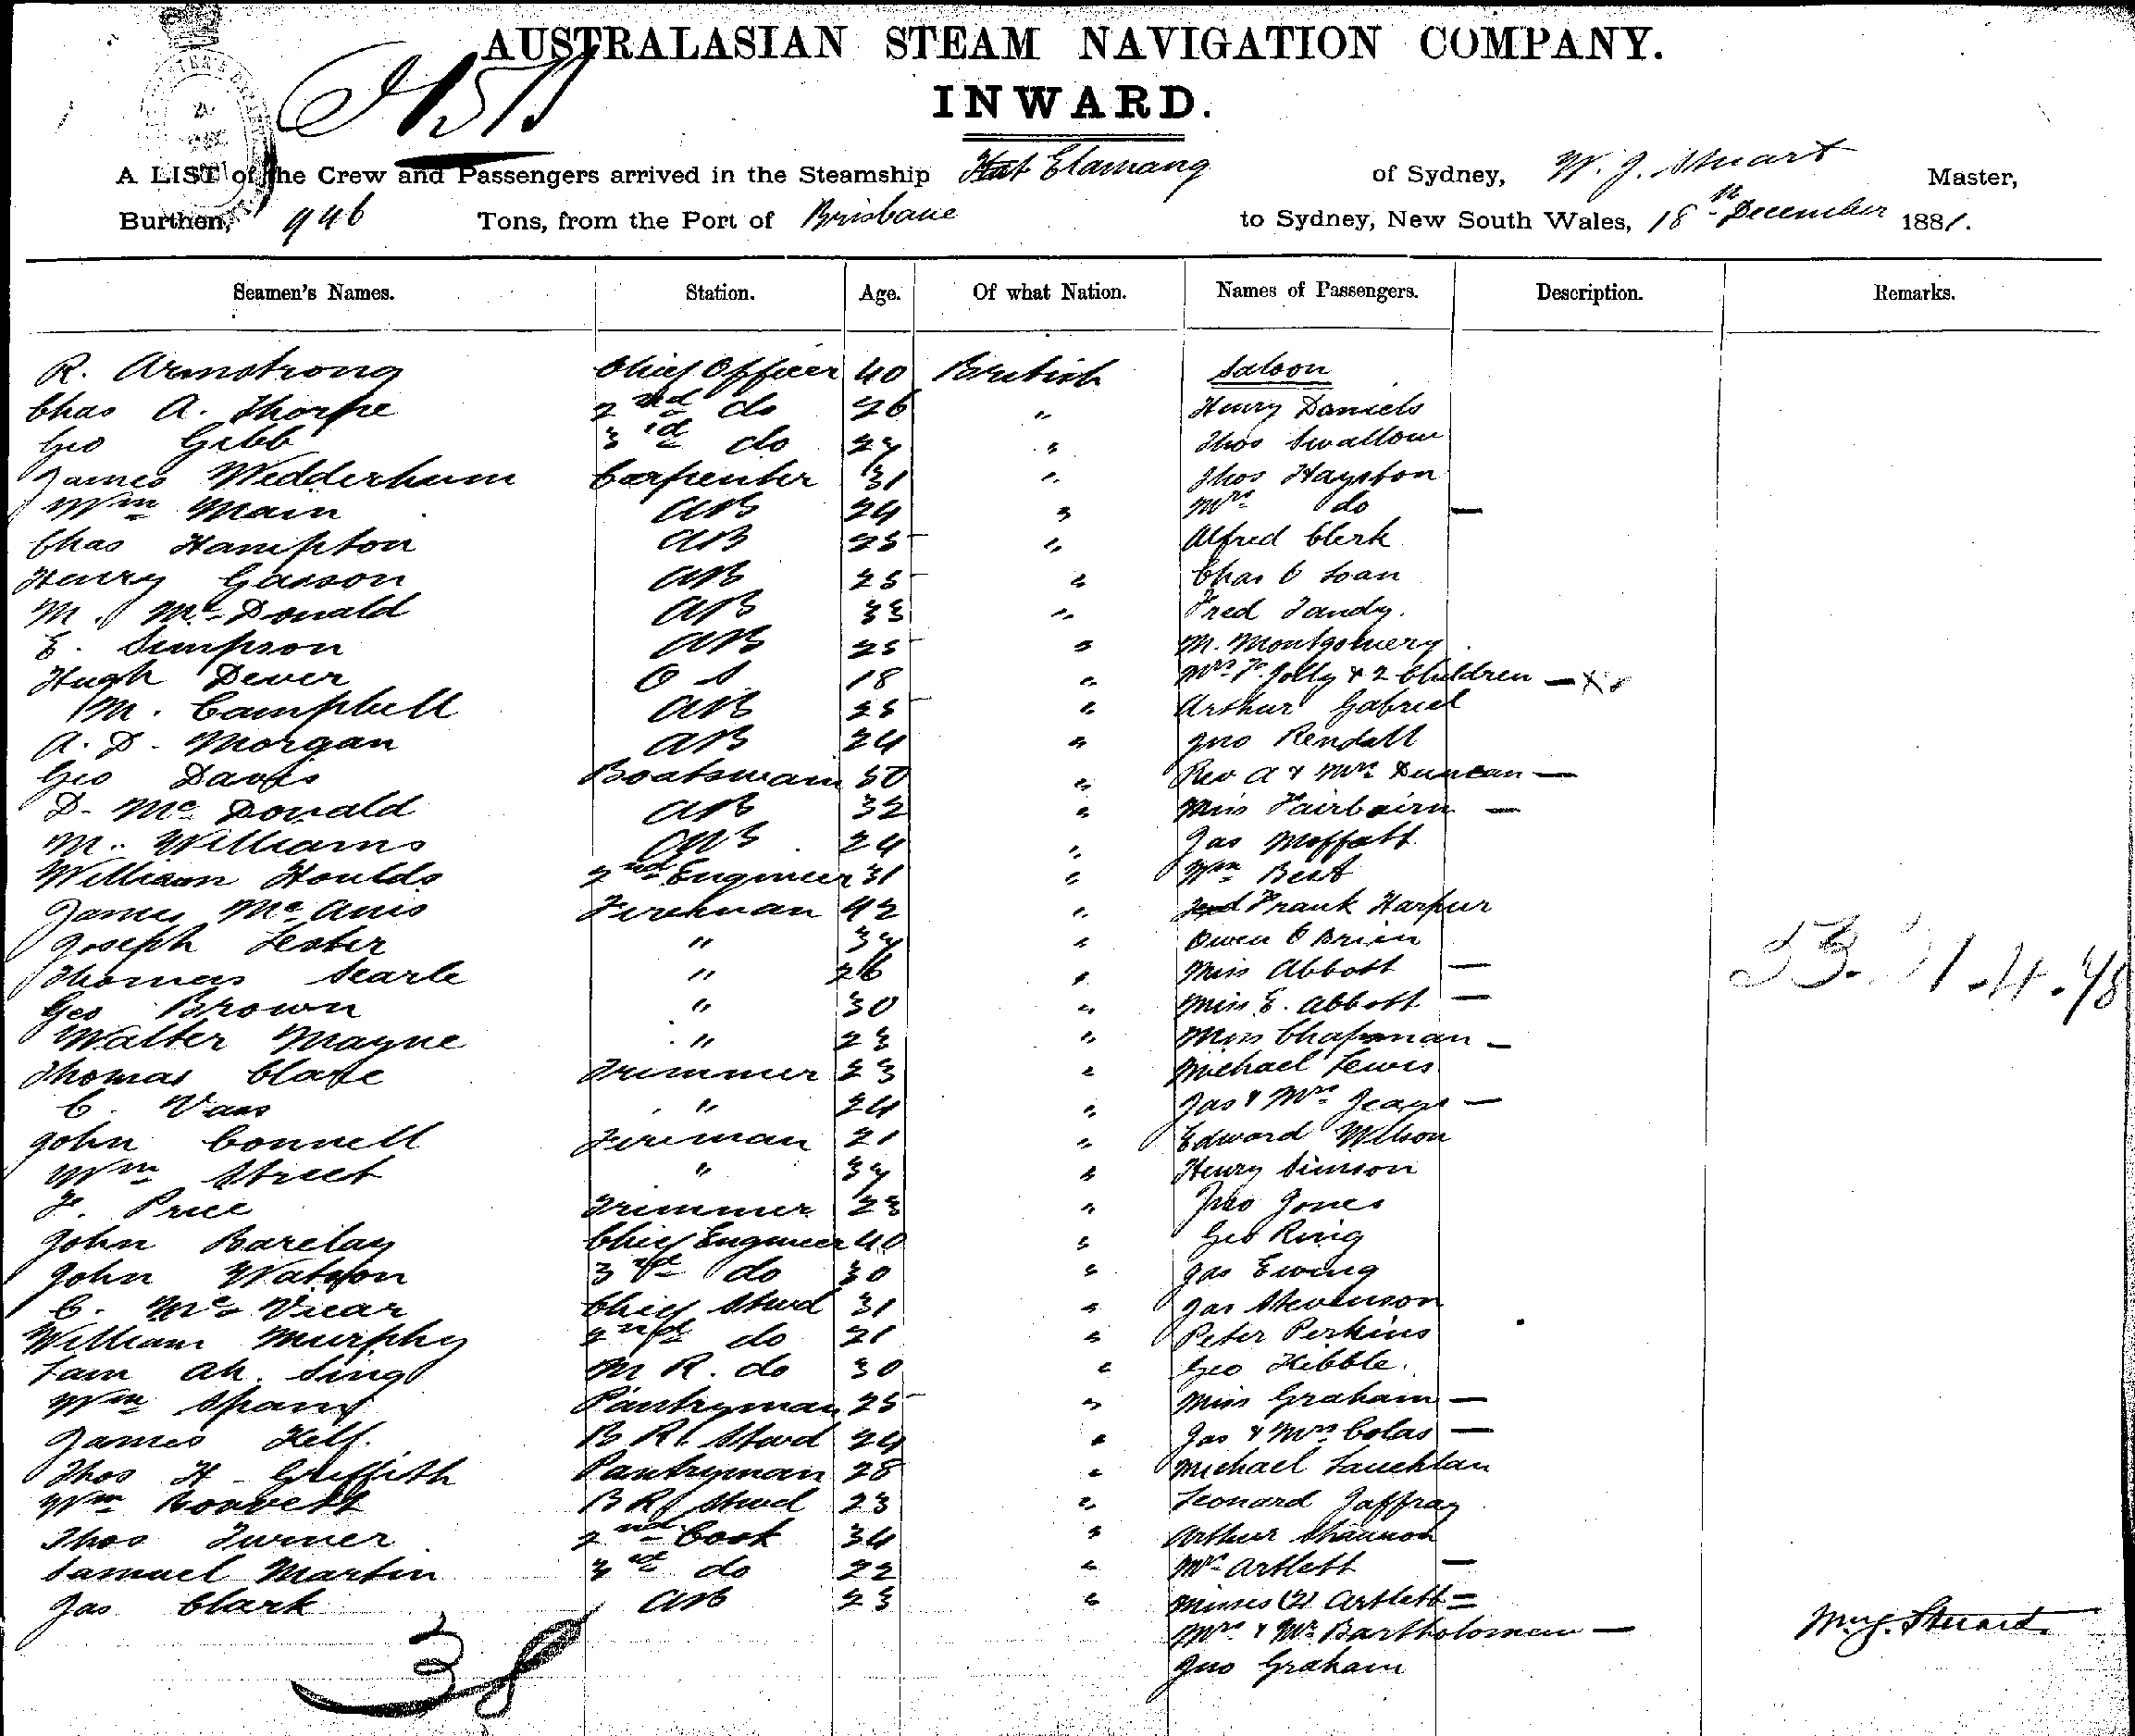 AUSTRALASIAN STEAM NAVIGATION COMPANY.
INWARD.
A LIST of the Crew and Passengers arrived in the Steamship Elamang of Sydney, W. J. Stuart Master,
Burthen, 946 Tons, from the Port of Brisbane to Sydney, New South Wales, 18th December 1881.
Seamen's Names. Station. Age. Of what Nation. Names of Passengers. Description. Remarks.
R. Armstrong Chief Officer 40 British Saloon
Chas A. Thorpe 2nd do 26 " Henry Daniels
Geo Gibb 3rd do 27 " Thos Swallow
James Wedderburn Carpenter 31 " Thos Hayston
Wm Main AB 24 " Mrs do —
Chas Hampton AB 25 " Alfred Clerk
Henry Gasson AB 25 " Chas O Loan
M. McDonald AB 33 " Fred Tandy.
E. Simpson AB 25 " M. Montgomery
Hugh Dever O S 18 " Mrs F. Jolly & 2 Children —
M. Campbell AB 25 " Arthur Gabriel
A. D. Morgan AB 24 " Jno Rendall
Geo Davis Boatswain 50 " Rev A & Mrs Duncan —
D. McDonald AB 32 " Miss Fairbairn —
M. Williams AB 24 " Jas Moffatt
William Houlds 2nd Engineer 31 " Wm Best
James McAnis Fireman 42 " Frank Harpur
Joseph Lester " 37 " Owen O Brien
Thomas Searle " 26 " Miss Abbott —
Geo Brown " 30 " Miss E. Abbott —
Walter Mayne " 23 " Miss Chapman —
Thomas Clare Trimmer 23 " Michael Lewis
C. Vaas " 24 " Jas & Mrs Jeays —
John Connell Fireman 21 " Edward Wilson
Wm Street " 37 " Henry Simson
F. Price Trimmer 23 " Jno Jones
John Barclay Chief Engineer 40 " Geo Ring
John Watson 3rd do 30 " Jas Ewing
C. McVicar Chief Stwd 31 " Jas Stevenson
William Murphy 2nd do 21 " Peter Perkins
Lam Ah Sing M R. do 30 " Geo Kibble.
Wm Pantryman 25 " Miss Graham —
James Kell. B R. Stwd 24 " Jas & Mrs Colas —
Thos H Griffith Pantryman 28 " Michael Lauchlan
Wm B R. Stwd 23 " Leonard Jaffray
Thos Turner 2nd Cook 34 " Arthur Shannon
Samuel Martin 3rd do 22 " Mrs Artlett —
Jas Clark AB 23 " Misses (2) Artlett =
Mrs & Mr Bartholomew —
Jno Graham
38
W. J. Stuart.